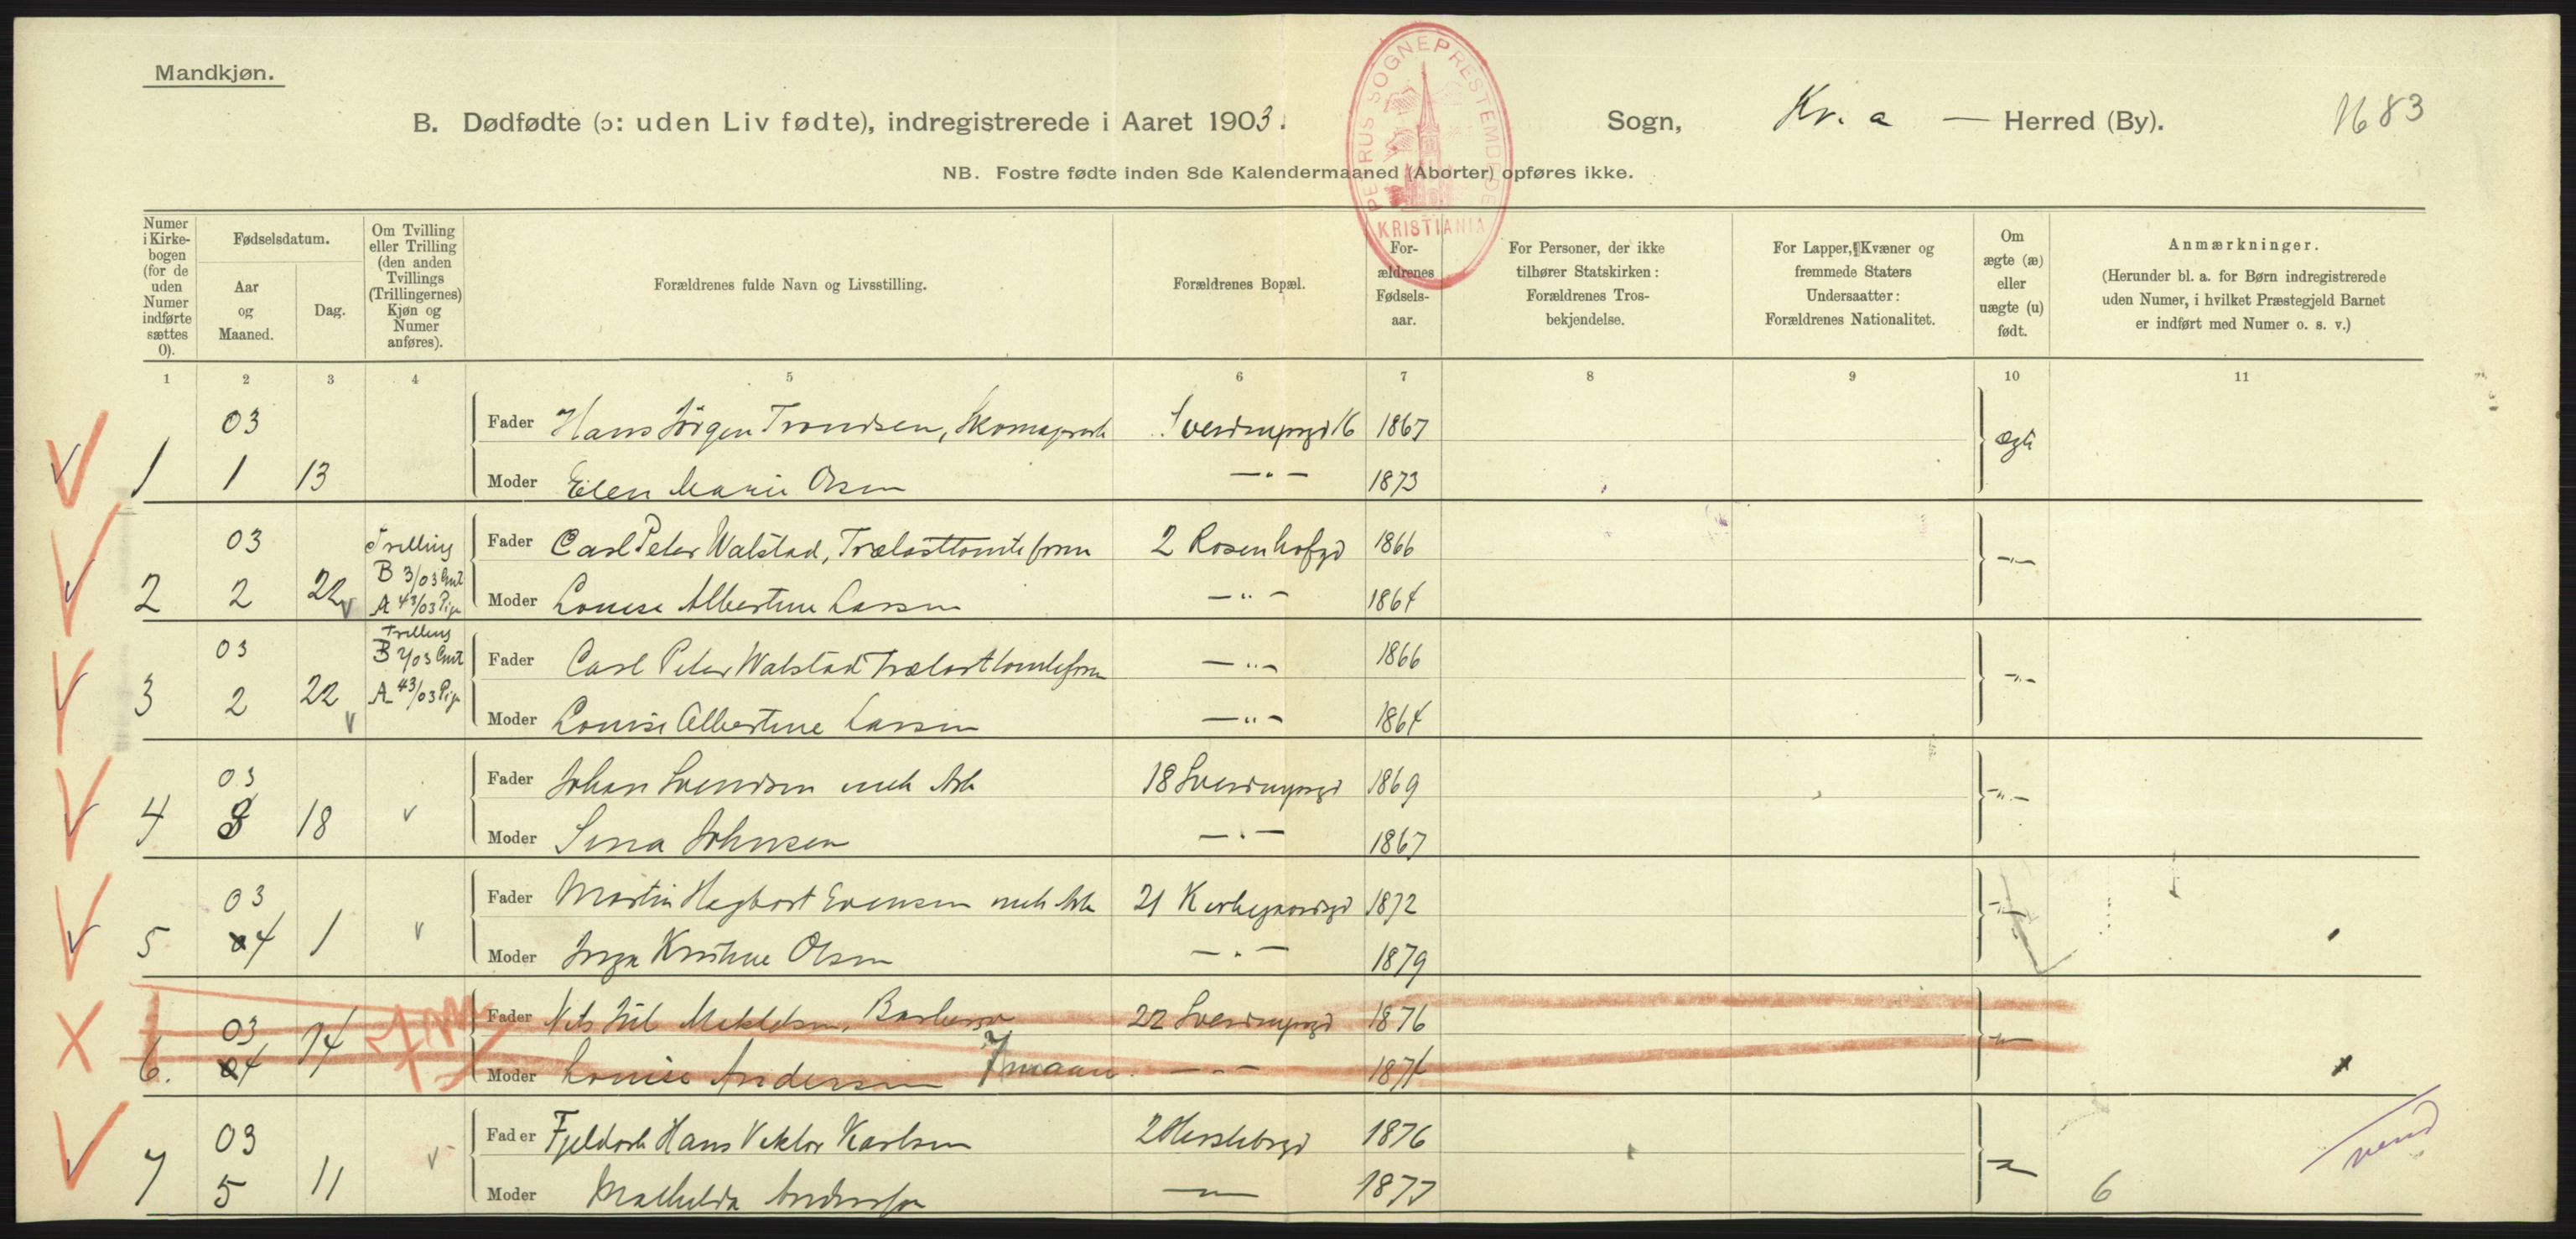 Mandkjøn.
B. Dødfødte (ɔ: uden Liv fødte), indregistrerede i Aaret 1903. Sogn, Kr. a — Herred (By). 1683
NB. Fostre fødte inden 8de Kalendermaaned (Aborter) opføres ikke.
PETRUS SOGNEPRESTEMBEDE
KRISTIANIA
Numer i Kirkebogen (for de uden Numer indførte sættes 0).
Fødselsdatum.
Aar og Maaned.
Dag.
Om Tvilling eller Trilling (den anden Tvillings (Trillingernes) Kjøn og Numer anføres).
Forældrenes fulde Navn og Livsstilling.
Forældrenes Bopæl.
Forældrenes Fødselsaar.
For Personer, der ikke tilhører Statskirken: Forældrenes Trosbekjendelse.
For Lapper, Kvæner og fremmede Staters Undersaatter: Forældrenes Nationalitet.
Om ægte (æ) eller uægte (u) født.
Anmærkninger.
(Herunder bl. a. for Børn indregistrerede uden Numer, i hvilket Præstegjeld Barnet er indført med Numer o. s. v.)
1 2 3 4 5 6 7 8 9 10 11
03 Fader Hans Jörgen Trondsen, Skomagersv Sverdrupsgd 16 1867 ægte
1 1 13 Moder Ellen Marie Olsen —"— 1873
03 Trilling Fader Carl Peter Walstad, Trælasttomteform 2 Rosenhofgd 1866 —"—
B 3/03 Gut
2 2 22 A 43/03 Pige Moder Louise Albertine Larsen —"— 1864
Trilling
03 B 2/03 Gut Fader Carl Peter Walstad Trælasttomteform —"— 1866 —"—
3 2 22 A 43/03 Pige Moder Louise Albertine Larsen —"— 1864
03 Fader Johan Svendsen mek Arb 18 Sverdrupsgd 1869 —"—
4 3 18 Moder Sina Johnsen —"— 1867
03 Fader Martin Hagbart Evensen mek Arb 21 Kirkegaardsgd 1872 —"—
5 4 1 Moder Inga Kristine Olsen —"— 1879
03 Fader Nils Jul Mikkelsen, Barberer 22 Sverdrupsgd 1876 —"—
6. 4 14 7 m Moder Louise Andersen 7 maan. —"— 1874
03 Fader Fjeldarb Hans Viktor Karlsen 2 Herslebsgd 1876 —"—
7 5 11 Moder Mathilda Andersson —"— 1877 6
vend